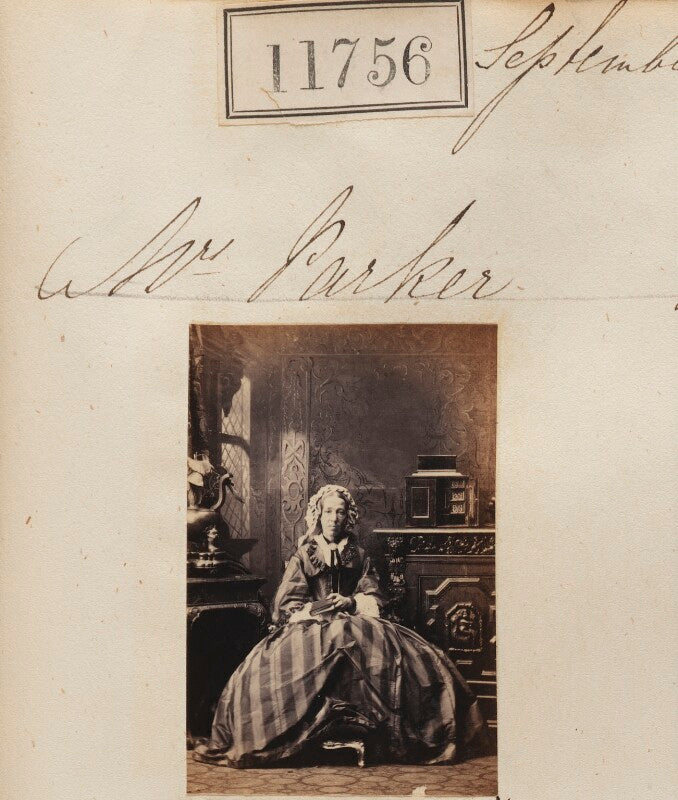 11756
Septembe
Mrs Parker